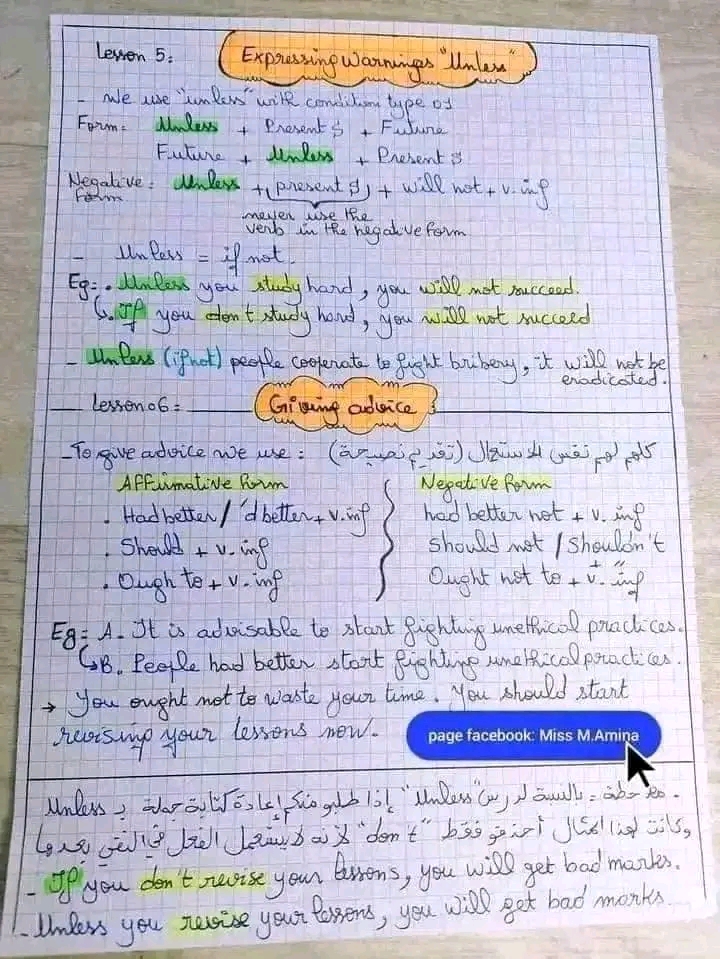 Lesson 5:
Expressing Warnings "Unless"
- We use "unless" with condition type 01
Form= Unless + Present S + Future
Future + Unless + Present S
Negative: Unless + (present S) + will not + v. inf
Form
never use the
verb in the negative form
- Unless = if not.
Eg: . Unless you study hard, you will not succeed.
↳. If you don't study hard, you will not succeed
- Unless (if not) people cooperate to fight bribery, it will not be
eradicated.
Lesson 06=
Giving advice
- To give advice we use : (تقديم نصيحة) كلهم لهم نفس الاستعمال
Affirmative Form
Negative form
. Had better / 'd better + v. inf
had better not + v. inf
. Should + v. inf
Should not / Shouldn't
+ "
. Ough to + v. inf
Ought not to + v. inf
Eg= A. It is advisable to start fighting unethical practices.
↳B. People had better start fighting unethical practices.
→ You ought not to waste your time. You should start
revising your lessons now.
page facebook: Miss M.Amina
. ملاحظة = بالنسبة لدرس "Unless" إذا طلبو منكم إعادة كتابة جملة بـ Unless
وكانت لهذا المثال أحذفو فقط "don't" لأنه لا يستعمل الفعل في النفي بعدها
- If you don't revise your lessons, you will get bad marks.
- Unless you revise your lessons, you will get bad marks